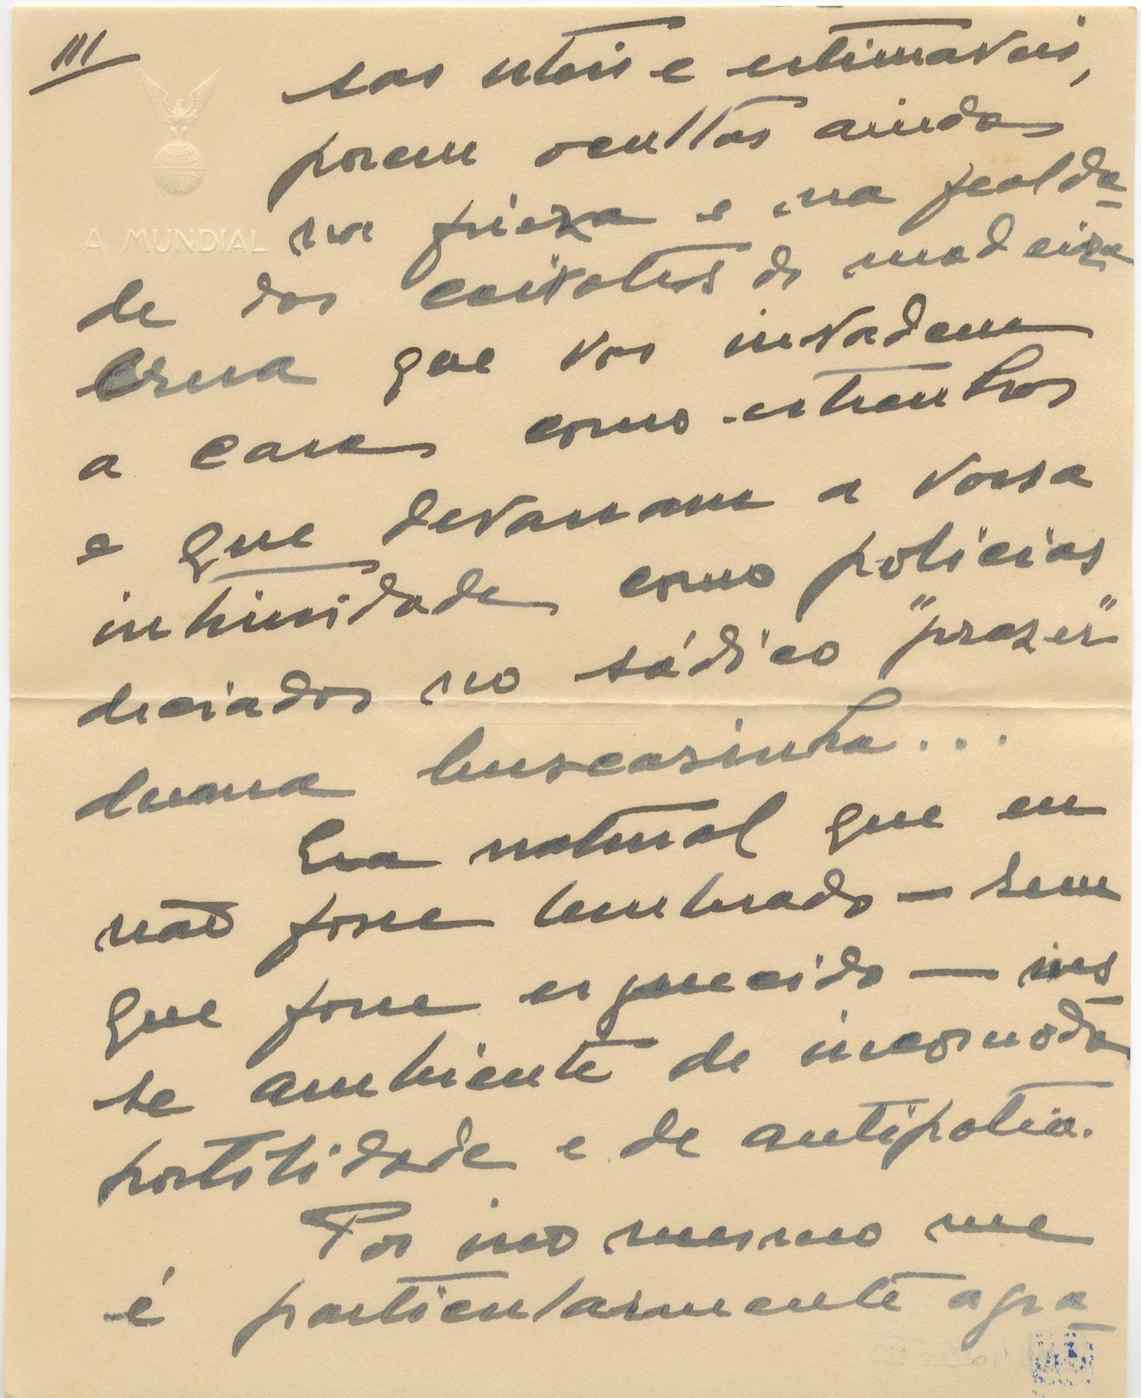 III
A MUNDIAL
sas uteis e estimaveis,
porem ocultas ainda
na frieza e na fealda-
de dos caixotes de madeira
crua que vos invadem
a casa como estranhos
e que devassam a vossa
intimidade como policias
viciados no sádico "prazer"
duma buscasinha...
Era natural que eu
não fosse lembrado — sem
que fosse esquecido — nes
se ambiente de incomoda
hostilidade e de antipatia.
Por isso mesmo me
é particularmente agra